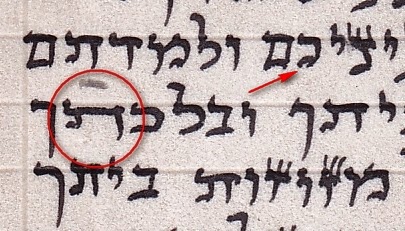 יניכם ולמדתם
יתך ובלכתך
מזוזות ביתך